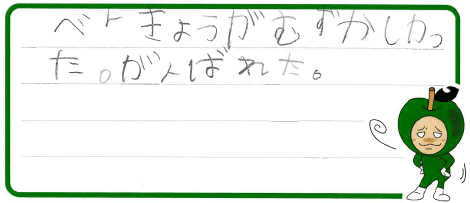 べトきょうがむずかしかっ
た。がんばれた。